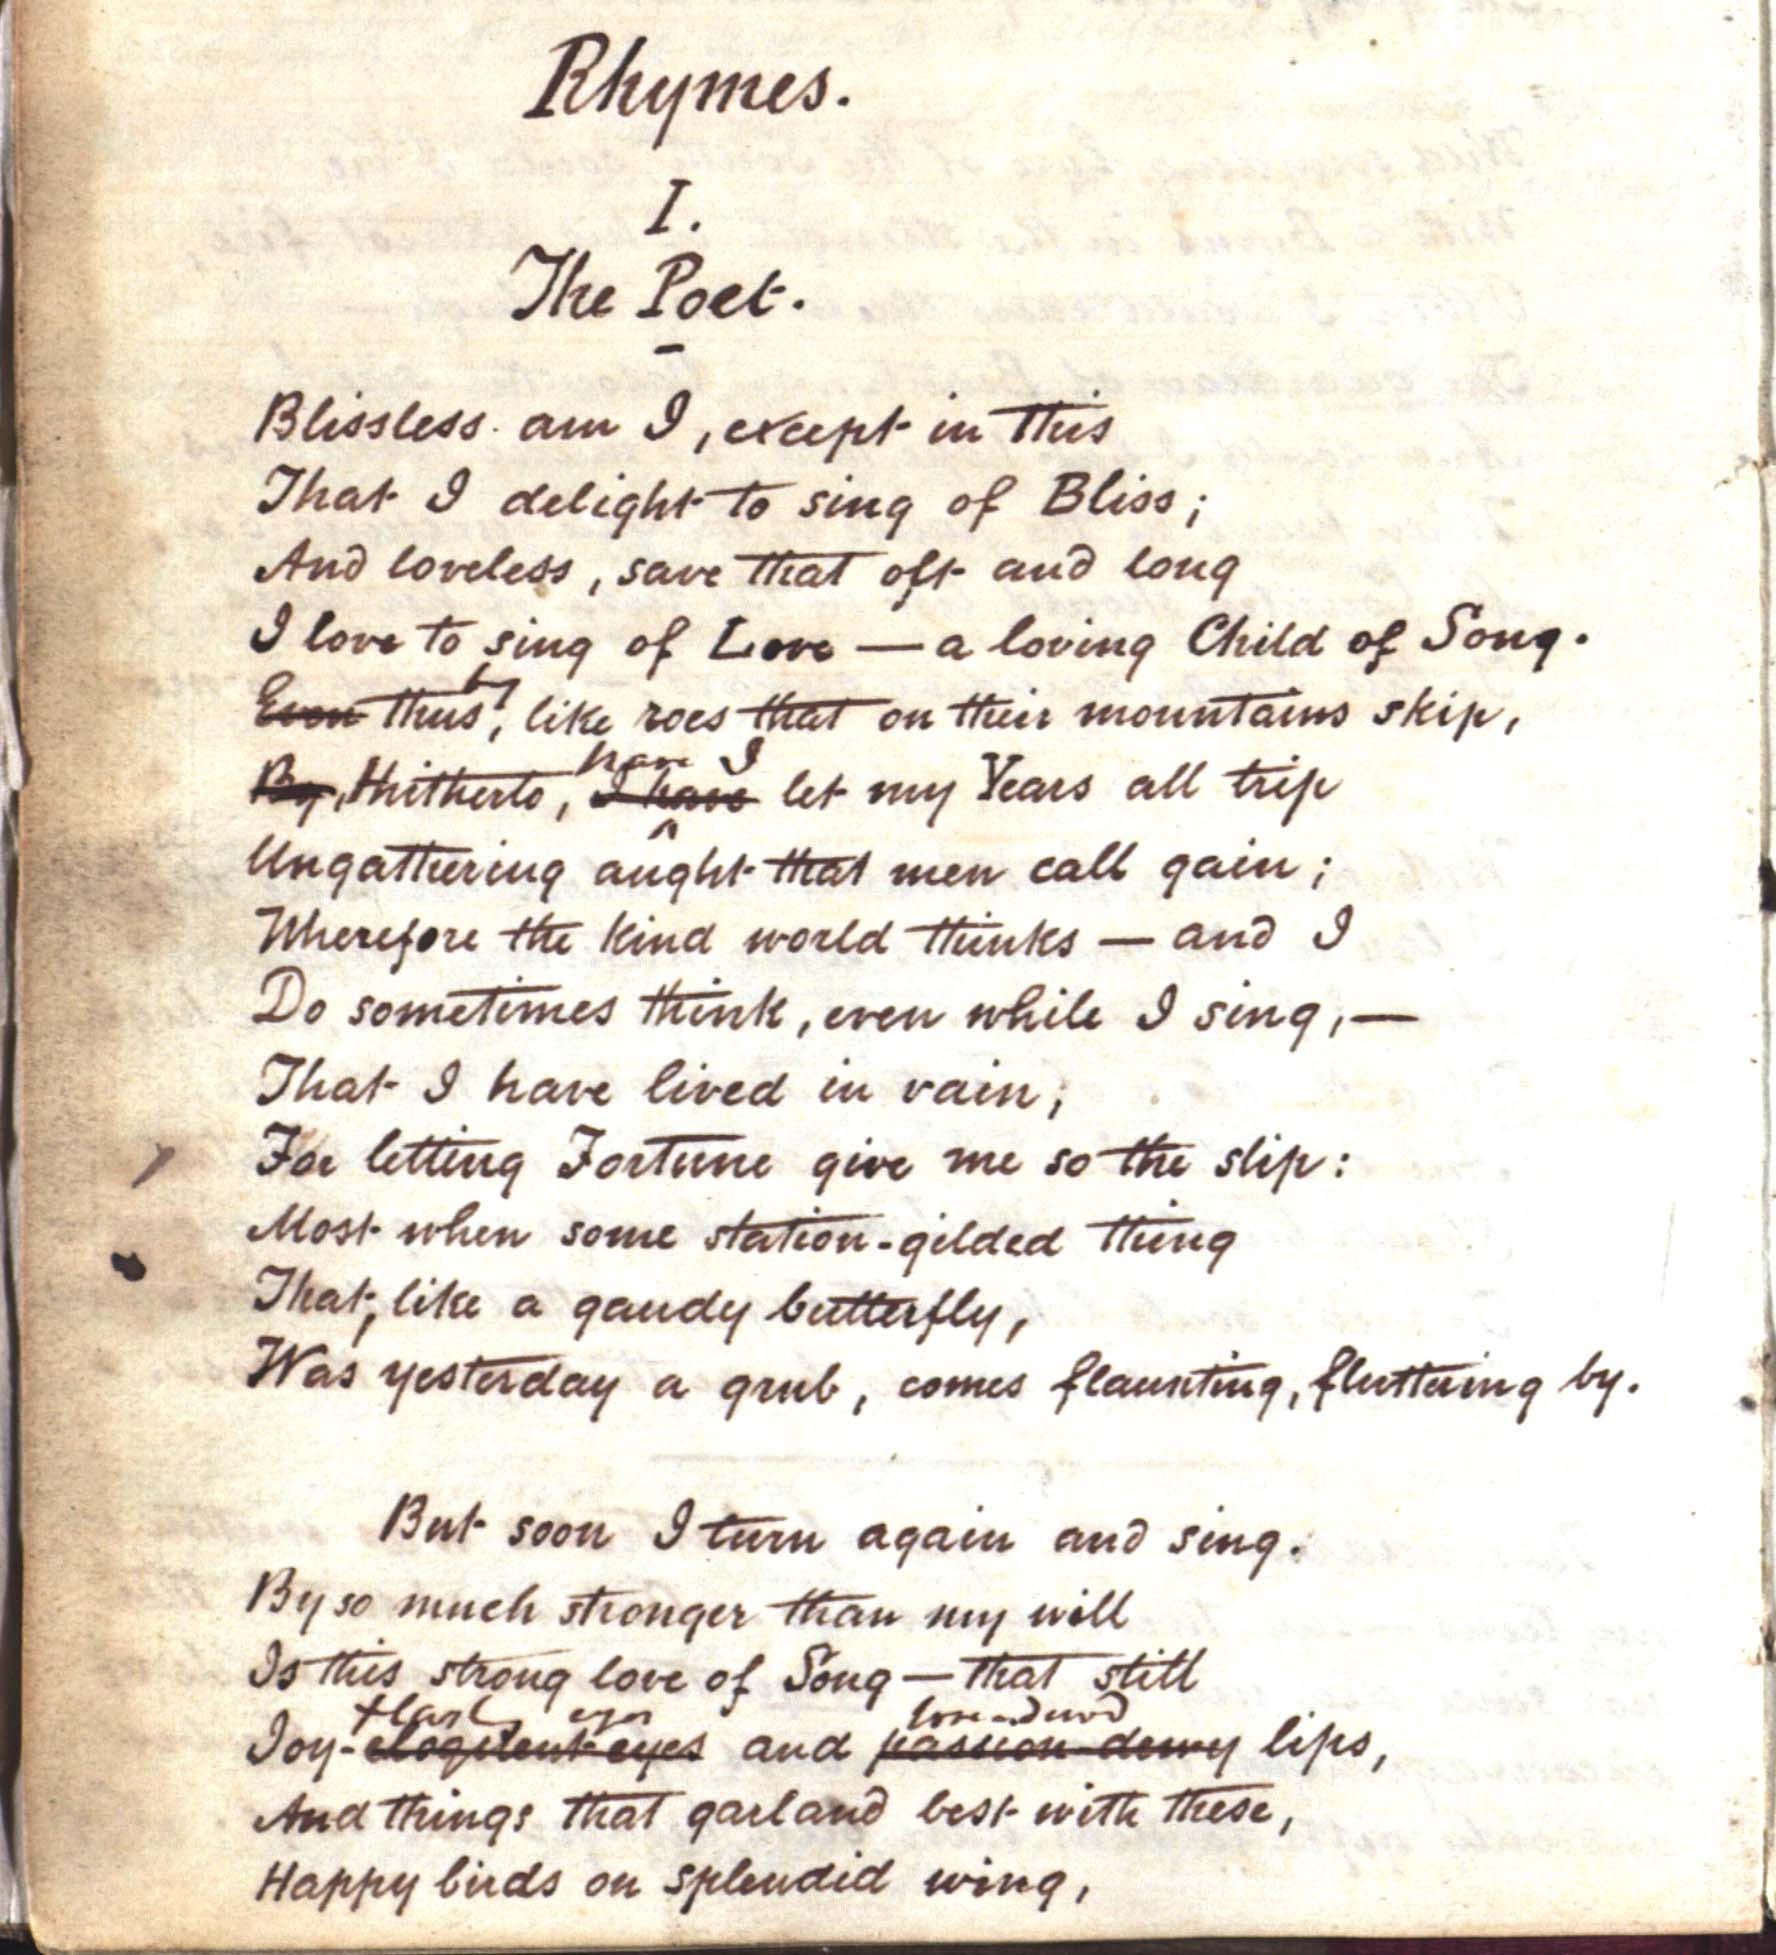 Rhymes.
I.
The Poet.
Blissless am I, except in this
That I delight to sing of Bliss;
And loveless, save that oft and long
I love to sing of Love — a loving Child of Song.
by
Even thus, like roes that on their mountains skip,
have I
By, thitherto, I have let my Years all trip
Ungathering aught that men call gain;
Wherefore the kind world thinks — and I
Do sometimes think, even while I sing, —
That I have lived in vain;
For letting Fortune give me so the slip:
Most when some station-gilded thing
That, like a gaudy butterfly,
Was yesterday a grub, comes flaunting, fluttering by.
But soon I turn again and sing.
By so much stronger than my will
Is this strong love of Song — that still
eyes love-dewd
Joy-eloquent eyes and passion-dewy lips,
And things that garland best with these,
Happy birds on splendid wing,